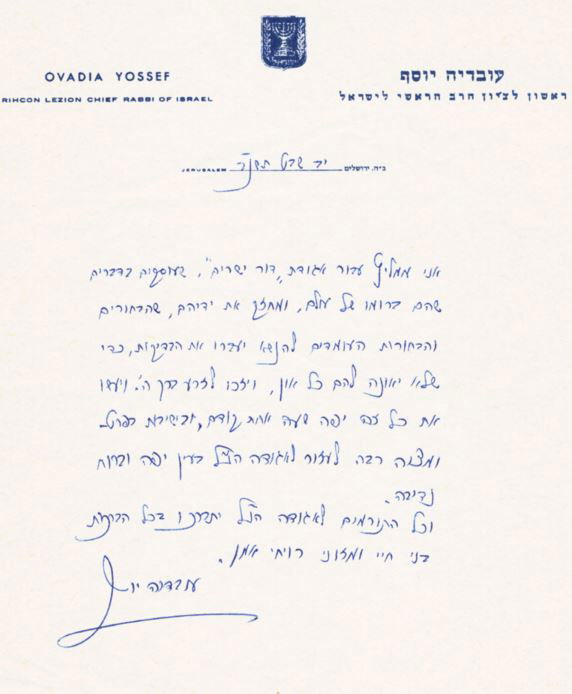 OVADIA YOSSEF
RIHCON LEZION CHIEF RABBI OF ISRAEL
עובדיה יוסף
ראשון לציון הרב הראשי לישראל
JERUSALEM יד שבט ב״ה, ירושלים
אני ממליץ עבור אגודת "דור ישרים", שעוסקים בדברים
שהם ברומו של עולם, ומחזק את ידיהם, שהבחורים
והבחורות העומדים להנשא יעברו את הבדיקות, כדי
שלא יאונה להם כל און, ויזכו לזרע ברך ה'. ויעשו
את כל זה יפה שעה אחת קודם,
ומצוה רבה לעזור לאגודה הנ"ל בעין יפה וברוח
נדיבה.
וכל התורמים לאגודה הנ"ל יתברכו בכל הברכות
בני חיי ומזוני רויחי אמן.
עובדיה יוסף